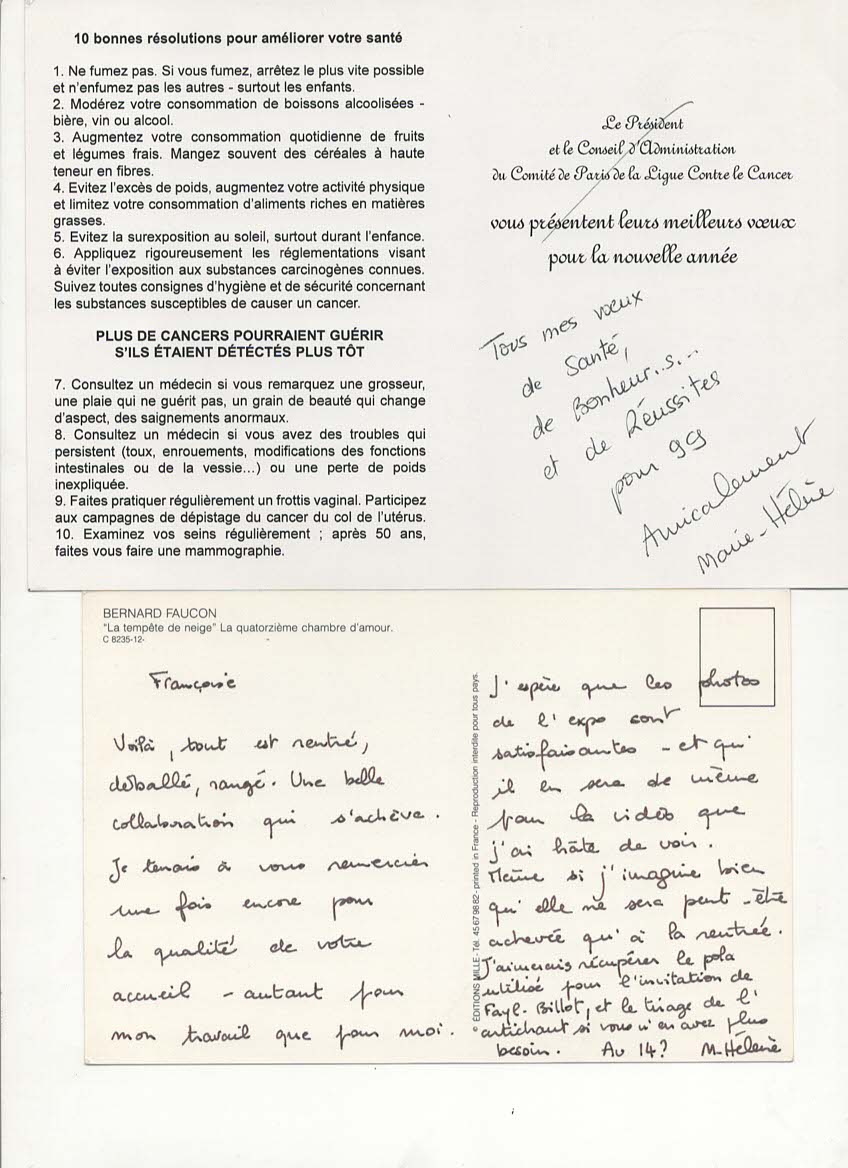 10 bonnes résolutions pour améliorer votre santé
1. Ne fumez pas. Si vous fumez, arrêtez le plus vite possible
et n'enfumez pas les autres - surtout les enfants.
2. Modérez votre consommation de boissons alcoolisées -
bière, vin ou alcool.
3. Augmentez votre consommation quotidienne de fruits
et légumes frais. Mangez souvent des céréales à haute
teneur en fibres.
4. Evitez l'excès de poids, augmentez votre activité physique
et limitez votre consommation d'aliments riches en matières
grasses.
5. Evitez la surexposition au soleil, surtout durant l'enfance.
6. Appliquez rigoureusement les réglementations visant
à éviter l'exposition aux substances carcinogènes connues.
Suivez toutes consignes d'hygiène et de sécurité concernant
les substances susceptibles de causer un cancer.
PLUS DE CANCERS POURRAIENT GUÉRIR
S'ILS ÉTAIENT DÉTÉCTÉS PLUS TÔT
7. Consultez un médecin si vous remarquez une grosseur,
une plaie qui ne guérit pas, un grain de beauté qui change
d'aspect, des saignements anormaux.
8. Consultez un médecin si vous avez des troubles qui
persistent (toux, enrouements, modifications des fonctions
intestinales ou de la vessie...) ou une perte de poids
inexpliquée.
9. Faites pratiquer régulièrement un frottis vaginal. Participez
aux campagnes de dépistage du cancer du col de l'utérus.
10. Examinez vos seins régulièrement ; après 50 ans,
faites vous faire une mammographie.
Le Président
et le Conseil d'Administration
du Comité de Paris de la Ligue Contre le Cancer
vous présentent leurs meilleurs vœux
pour la nouvelle année
Tous mes vœux
de Santé,
de Bonheur..s...
et de Réussites
pour 99
Amicalement
Marie-Hélène
BERNARD FAUCON
"La tempête de neige" La quatorzième chambre d'amour.
C 8235-12-
Françoise
Voilà, tout est rentré,
déballé, rangé. Une belle
collaboration qui s'achève.
Je tenais à vous remercier
une fois encore pour
la qualité de votre
accueil - autant pour
mon travail que pour moi.
© EDITIONS MILLE - Tél. 45 67 98 82 - printed in France - Reproduction interdite pour tous pays.
J'espère que les photos
de l'expo sont
satisfaisantes - et qu'
il en sera de même
pour la vidéo que
j'ai hâte de voir.
Même si j'imagine bien
qu'elle ne sera peut-être
achevée qu'à la rentrée.
J'aimerais récupérer le pola
utilisé pour l'invitation de
Fayl-Billot, et le tirage de l'
artichaut si vous n'en avez plus
besoin. Au 14? M-Hélène